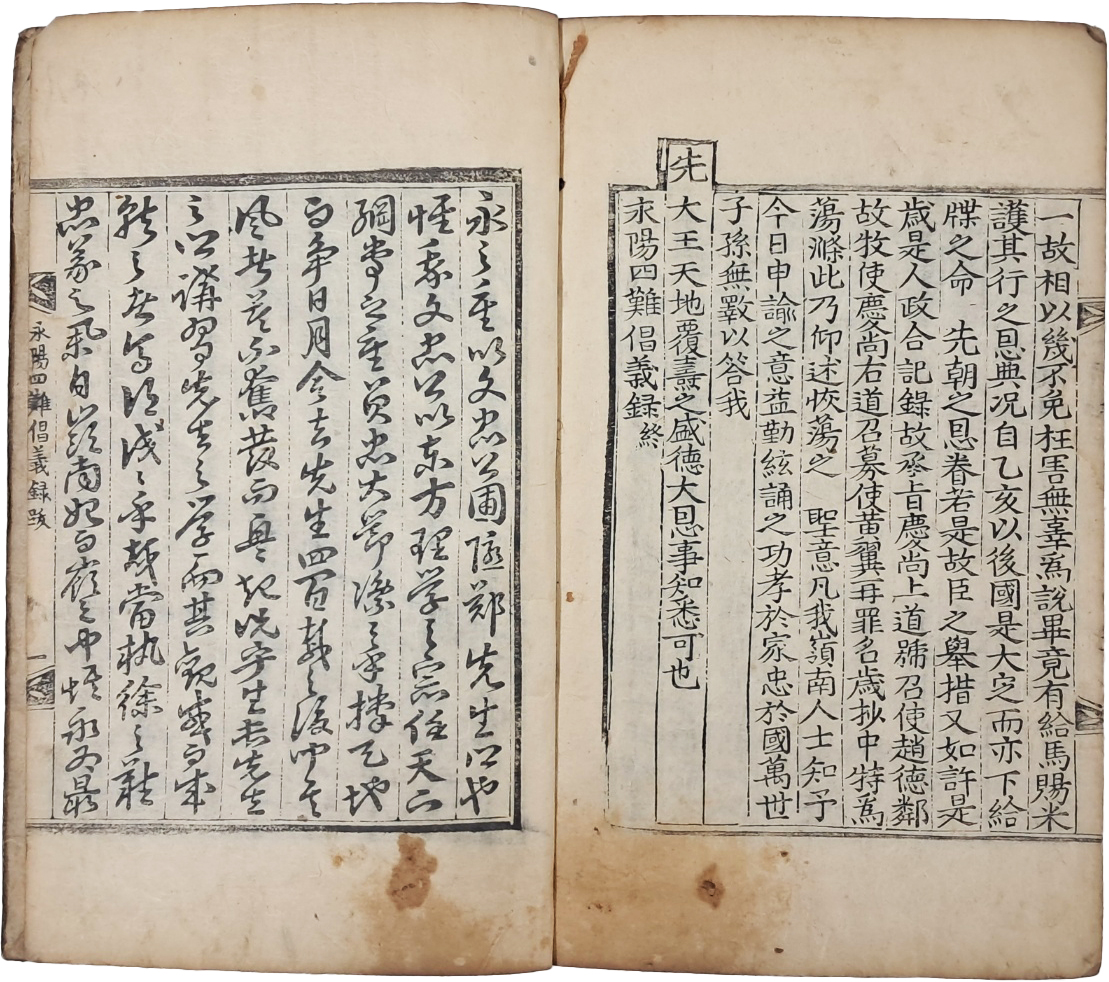 一故相以幾不免枉害無辜爲說畢竟有給馬賜米
護其行之恩典况自乙亥以後國是大定而亦下給
牒之命 先朝之恩眷若是故臣之舉措又如許是
歲是人政合記錄故丞旨慶尙上道號召使趙德鄰
故牧使慶尙右道召募使黃翼再罪名歲抄中特爲
蕩滌此乃仰述恢蕩之 聖意凡我嶺南人士知予
今日申諭之意益勤絃誦之功孝於家忠於國萬世
子孫無斁以答我
先
大王天地覆燾之盛德大恩事知悉可也
永陽四難倡義錄終
永之重以文忠公圃隱鄭先生以也
惟我文忠公以東方理學之宗任天下
綱常之重貞忠大節凜凜乎撐天地
而爭日月今去先生四百載之後聞其
風者莫不奮發而興起況寧生長先生
之
講習先生之學而其觀感而成
就之者
忠義之
自嶺南
永陽四難倡義錄跋
一